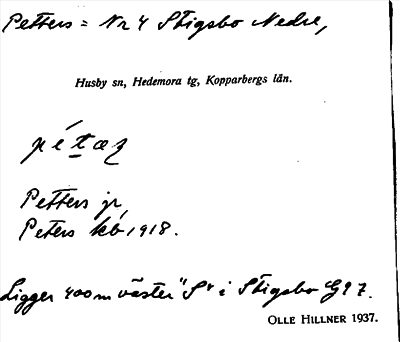 Petters = Nr 4 Stigsbo Nedre,
Husby sn, Hedemora tg, Kopparbergs län.
Petters jr,
Peters kb 1918.
Ligger 400 m väster "S" i Stigsbo G97.
OLLE HILLNER 1937.